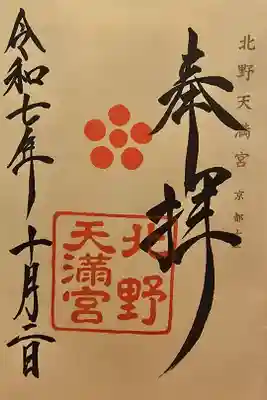 北野天満宮 京都
奉拝
北野
天満宮
令和七年 十月二日